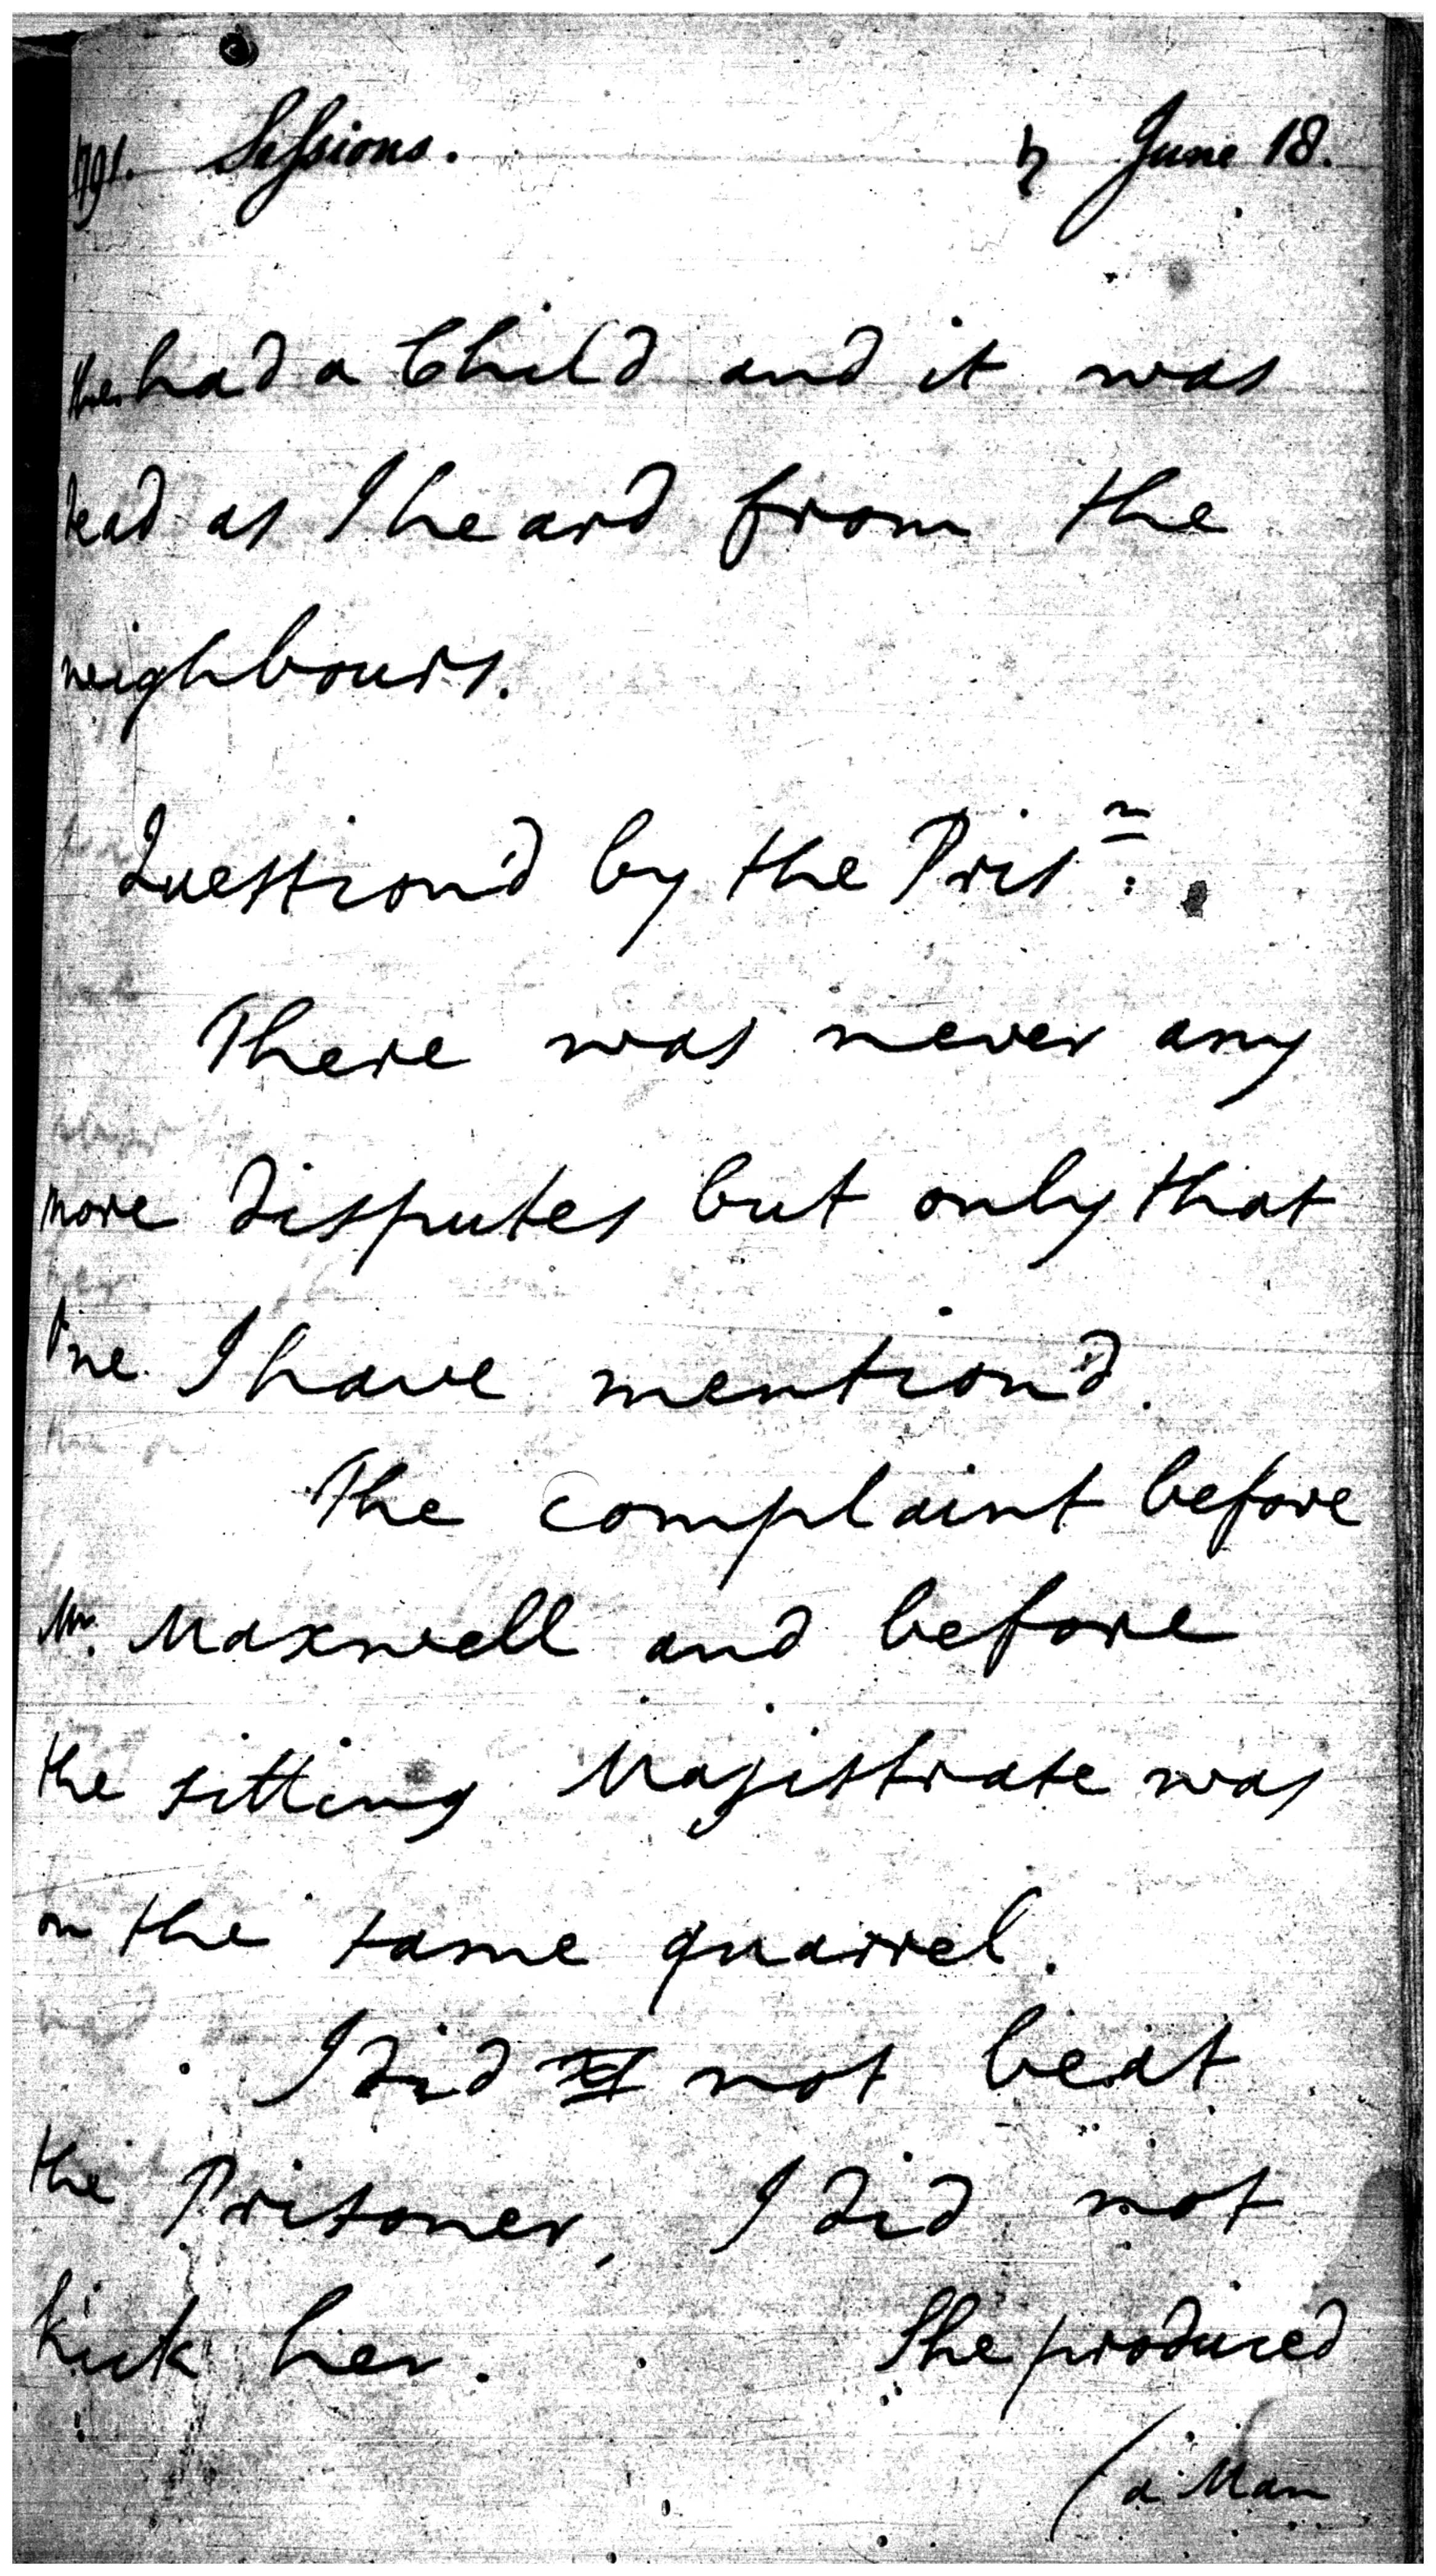 1791. Sessions. ♄ June 18.
she had a Child and it was
dead as I heard from the
neighbours.
Question'd by the Pris:ʳ
There was never any
more disputes but only that
one I have mention'd.
The complaint before
Mr. Maxwell and before
the sitting Magistrate was
on the same quarrel.
I did not beat
the Prisoner, I did not
kick her. She produced
(a Man